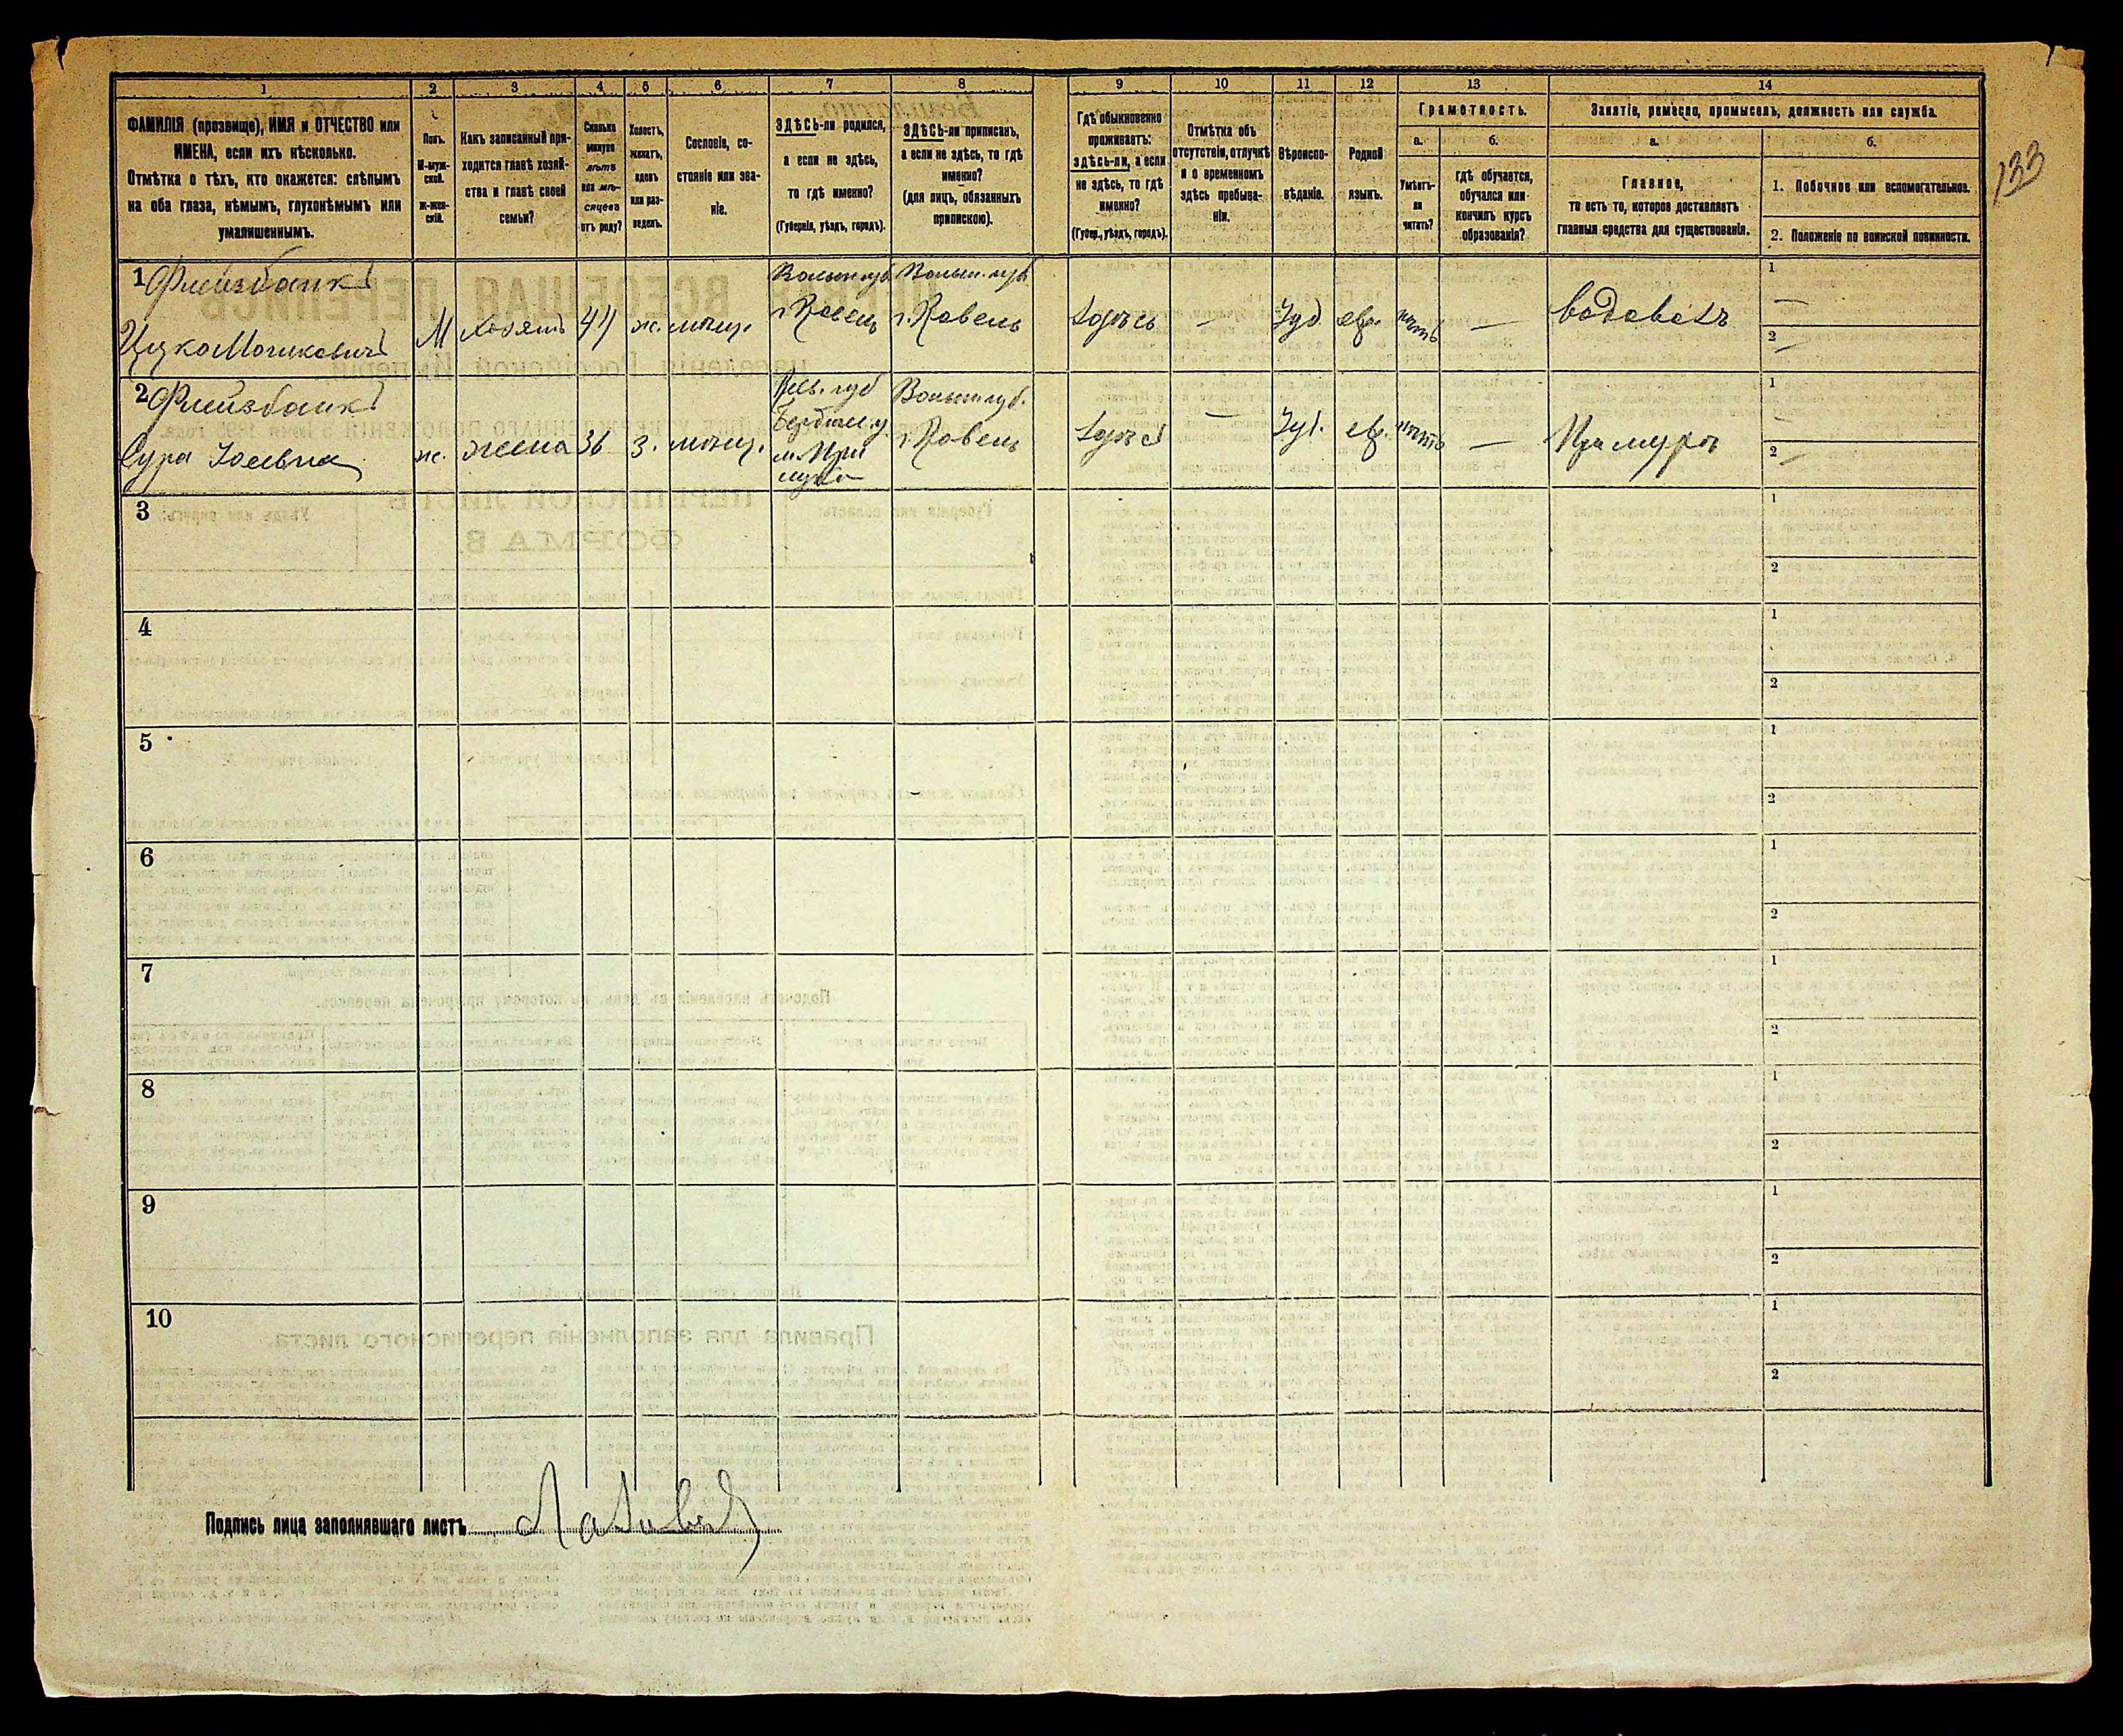 1 2 3 4 5 6 7 8 9 10 11 12 13 14
ФАМИЛІЯ (прозвище), ИМЯ и ОТЧЕСТВО или
ИМЕНА, если ихъ нѣсколько.
Отмѣтка о тѣхъ, кто окажется: слѣпымъ
на оба глаза, нѣмымъ, глухонѣмымъ или
умалишеннымъ.
Полъ.
М-муж-
ской.
ж-жен-
скій.
Какъ записанный при-
ходится главѣ хозяй-
ства и главѣ своей
семьи?
Сколько
минуло
лѣтъ
или мѣ-
сяцевъ
отъ роду?
Холостъ,
женатъ,
вдовъ
или раз-
веденъ.
Сословіе, со-
стояніе или зва-
ніе.
ЗДѢСЬ-ли родился,
а если не здѣсь,
то гдѣ именно?
(Губернія, уѣздъ, городъ).
ЗДѢСЬ-ли приписанъ,
а если не здѣсь, то гдѣ
именно?
(для лицъ, обязанныхъ
припискою).
Гдѣ обыкновенно
проживаетъ:
здѣсь-ли, а если
не здѣсь, то гдѣ
именно?
(Губер., уѣздъ, городъ).
Отмѣтка объ
отсутствіи, отлучкѣ
и о временномъ
здѣсь пребыва-
ніи.
Вѣроиспо-
вѣданіе.
Родной
языкъ.
Грамотность.
а.
Умѣетъ-
ли
читать?
б.
гдѣ обучается,
обучался или
кончилъ курсъ
образованія?
Занятіе, ремесло, промыселъ, должность или служба.
а.
Главное,
то есть то, которое доставляетъ
главныя средства для существованія.
б.
1. Побочное или вспомогательное.
2. Положеніе по воинской повинности.
133
1 Флейзбанкъ
Ицко Мошковичъ
М хозяинъ 44 ж. мѣщ.
Волын. губ
г. Ровень
Волын. губ
г. Ровень
здѣсь — Іуд. евр. нѣтъ — водовозъ
1 —
2 —
2 Флейзбанкъ
Сура
ж. жена 36 з. мѣщ.
Кіев. губ
Бердич. у
Волын. губ.
г. Ровень
здѣсь — Іуд. евр. нѣтъ — При мужѣ
1 —
2 —
3
1
2
4
1
2
5
1
2
6
1
2
7
1
2
8
1
2
9
1
2
10
1
2
Подпись лица заполнявшаго листъ